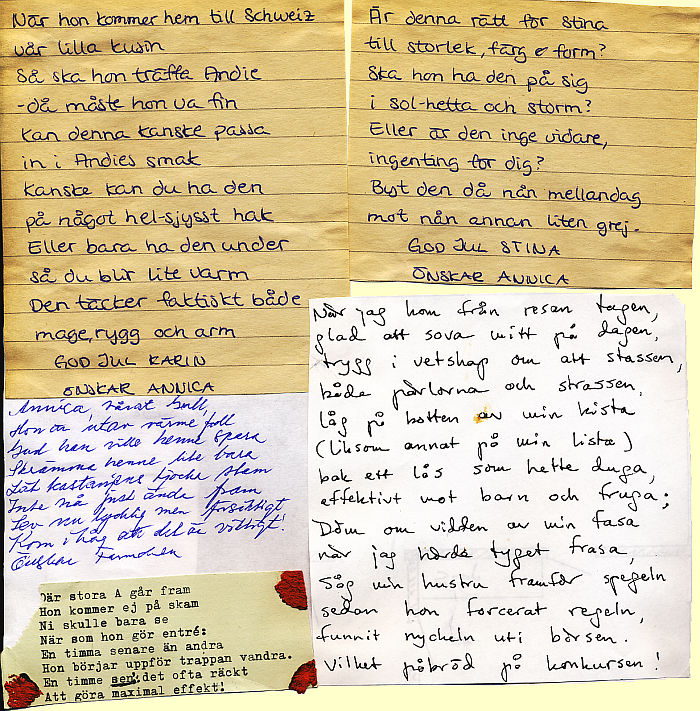 När hon kommer hem till Schweiz
vår lilla kusin
Så ska hon träffa Andie
-då måste hon va fin
Kan denna kanske passa
in i Andies smak
Kanske kan du ha den
på något hel-sjysst hak
Eller bara ha den under
så du blir lite varm
Den täcker faktiskt både
mage, rygg och arm
GOD JUL KARIN
ÖNSKAR ANNICA
Är denna rätt för Stina
till storlek, färg & form?
Ska hon ha den på sig
i sol-hetta och storm?
Eller är den inge vidare,
ingenting för dig?
Byt den då nån mellandag
mot nån annan liten grej.
GOD JUL STINA
ÖNSKAR ANNICA
Annica, vårat gull,
Hon är utav värme full
Gud han ville henne spara
Skrämma henne lite bara
Lät kastanjens tjocka stam
Inte nå just ända fram
Lev nu lycklig men försiktigt
Kom i håg att det är viktigt!
Önskar Farmodern
Där stora A går fram
Hon kommer ej på skam
Ni skulle bara se
När som hon gör entré:
En timma senare än andra
Hon börjar uppför trappan vandra.
En timme sen, det ofta räckt
Att göra maximal effekt!
När jag kom från resan tagen,
glad att sova mitt på dagen,
trygg i vetskap om att stassen,
både pärlorna och strassen,
låg på botten av min kista
(liksom annat på min lista)
bak ett lås som hette duga,
effektivt mot barn och fruga;
Döm om vidden av min fasa
när jag hörde tyget frasa,
Såg min hustru framför spegeln
sedan hon forcerat regeln,
funnit nyckeln uti börsen.
Vilket påbröd på konkursen!